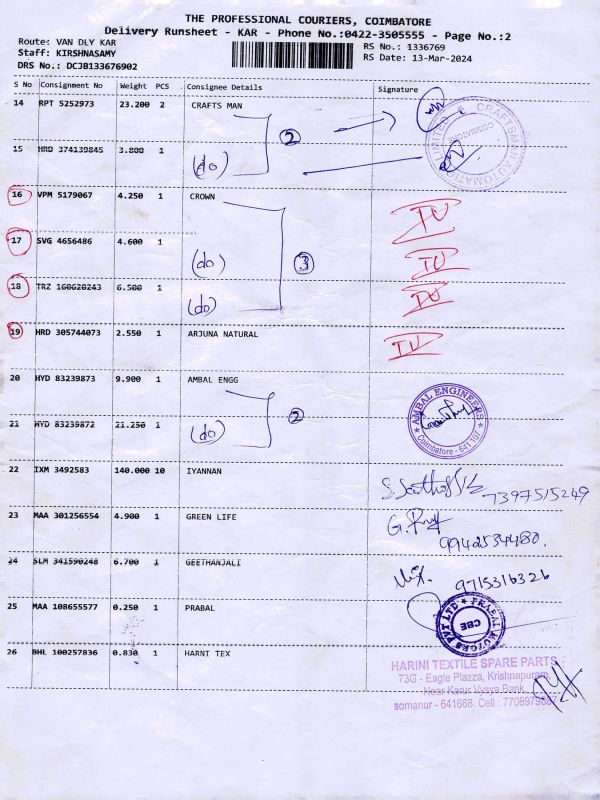 THE PROFESSIONAL COURIERS, COIMBATORE
Delivery Runsheet - KAR - Phone No.:0422-3505555 - Page No.:2
Route: VAN DLY KAR
Staff: KIRSHNASAMY
DRS No.: DCJB133676902
RS No.: 1336769
RS Date: 13-Mar-2024
S No Consignment No Weight PCS Consignee Details Signature
14 RPT 5252973 23.200 2 CRAFTS MAN
2
15 HRD 374139845 3.800 1 (do)
16 VPM 5179067 4.250 1 CROWN
17 SVG 4656486 4.600 1 (do)
3
18 TRZ 160620243 6.500 1 (do)
19 HRD 305744073 2.550 1 ARJUNA NATURAL
20 HYD 83239873 9.900 1 AMBAL ENGG
2
AMBAL ENGINEERS
Coimbatore - 641 107
21 HYD 83239872 21.250 1 (do)
22 IXM 3492583 140.000 10 IYANNAN
7397515249
23 MAA 301256554 4.900 1 GREEN LIFE
9942534480.
24 SLM 341590248 6.700 1 GEETHANJALI
9715316326
25 MAA 108655577 0.250 1 PRABAL
PRABAL MOTORS PVT LTD
CBE
26 BHL 100257836 0.830 1 HARNT TEX
HARINI TEXTILE SPARE PARTS
73G - Eagle Plazza, Krishnapuram,
Near Karur Vysya Bank
somanur - 641668. Cell :